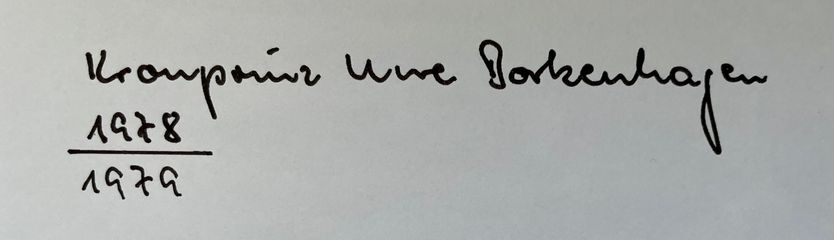 Kronprinz Uwe Borkenhagen
1978
1979